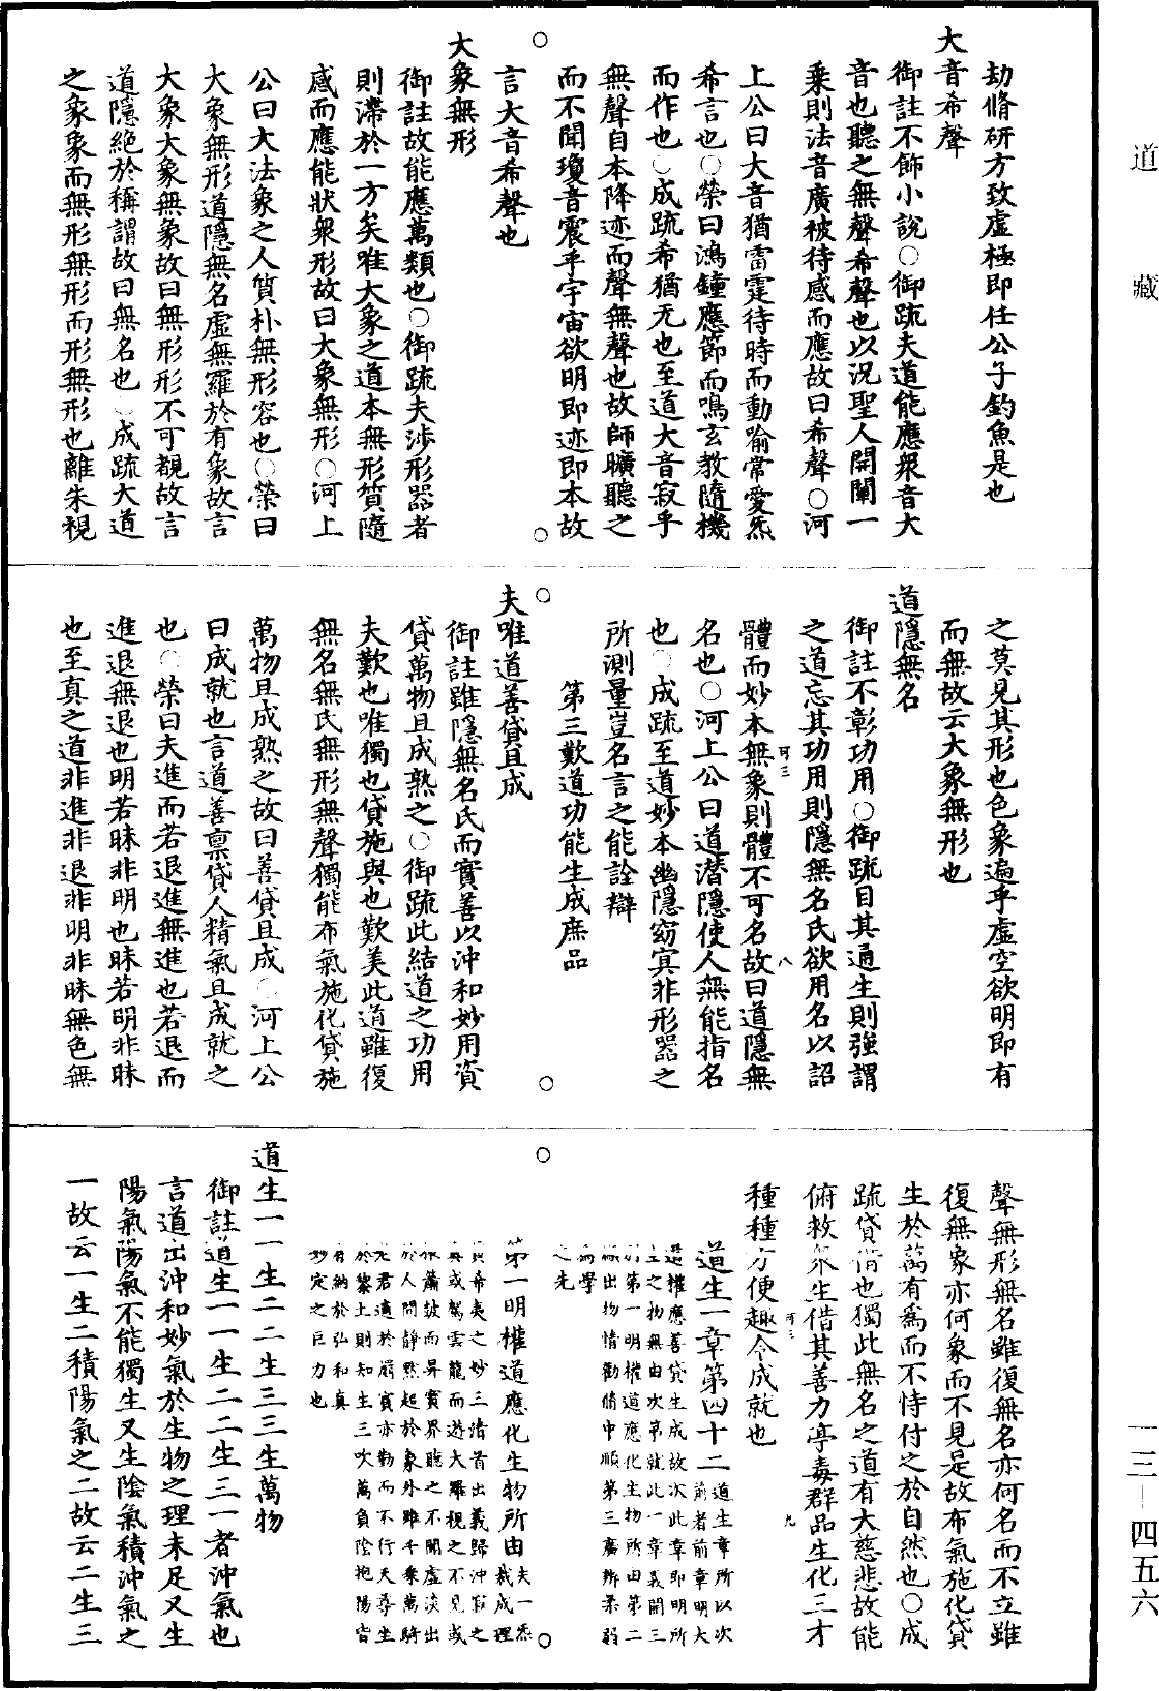 道藏
劫脩研方致虛極即任公子釣魚是也
大音希聲
御註不飾小說○御疏夫道能應衆音大
音也聽之無聲希聲也以況聖人開闡一
乘則法音廣被待感而應故曰希聲○河
上公曰大音猶雷霆待時而動喻常愛炁
希言也○榮曰鴻鐘應節而鳴玄教隨機
而作也○成疏希猶无也至道大音寂乎
無聲自本降迹而聲無聲也故師曠聽之
而不聞瓊音震乎宇宙欲明即迹即本故
言大音希聲也
大象無形
御註故能應萬類也○御疏夫涉形器者
則滯於一方矣唯大象之道本無形質隨
感而應能狀衆形故曰大象無形○河上
公曰大法象之人質朴無形容也○榮曰
大象無形道隱無名虛無羅於有象故言
大象大象無象故曰無形形不可覩故言
道隱絕於稱謂故曰無名也○成疏大道
之象象而無形無形而形無形也離朱視
之莫見其形也色象遍乎虛空欲明即有
而無故云大象無形也
道隱無名
御註不彰功用○御疏目其通生則強謂
之道忘其功用則隱無名氏欲用名以詔
體而妙本無象則體不可名故曰道隱無
可三 八
名也○河上公曰道潛隱使人無能指名
也○成疏至道妙本幽隱窈冥非形器之
所測量豈名言之能詮辯
第三歎道功能生成庶品
夫唯道善貸且成
御註雖隱無名氏而實善以沖和妙用資
貸萬物且成熟之○御疏此結道之功用
夫歎也唯獨也貸施與也歎美此道雖復
無名無氏無形無聲獨能布氣施化貸施
萬物且成熟之故曰善貸且成○河上公
曰成就也言道善稟貸人精氣且成就之
也○榮曰夫進而若退進無進也若退而
進退無退也明若昧非明也昧若明非昧
也至真之道非進非退非明非昧無色無
聲無形無名雖復無名亦何名而不立雖
復無象亦何象而不見是故布氣施化貸
生於萬有爲而不恃付之於自然也○成
疏貸借也獨此無名之道有大慈悲故能
俯救衆生借其善力亭毒群品生化三才
可三 九
種種方便趣令成就也
道生一章第四十二道生章所以次前者前章明大
道權應善貸生成故次此章即明所
生之物無由次第就此一章義開三
別第一明權道應化生物所由第二
顯出物情勸脩中順第三廣辯柔弱
爲學
之先
第一明權道應化生物所由夫一炁裁成理
貫希夷之妙三清首出義歸沖寂之
典或駕雲龍而遊大羅視之不見或
於人間靜默超於象外雖千乘萬騎
於黎土則知生三吹萬負陰抱陽皆
有納於弘和真
妙定之巨力也
道生一一生二二生三三生萬物
御註道生一一生二二生三一者沖氣也
言道出沖和妙氣於生物之理未足又生
陽氣陽氣不能獨生又生陰氣積沖氣之
一故云一生二積陽氣之二故云二生三
一三—四五六